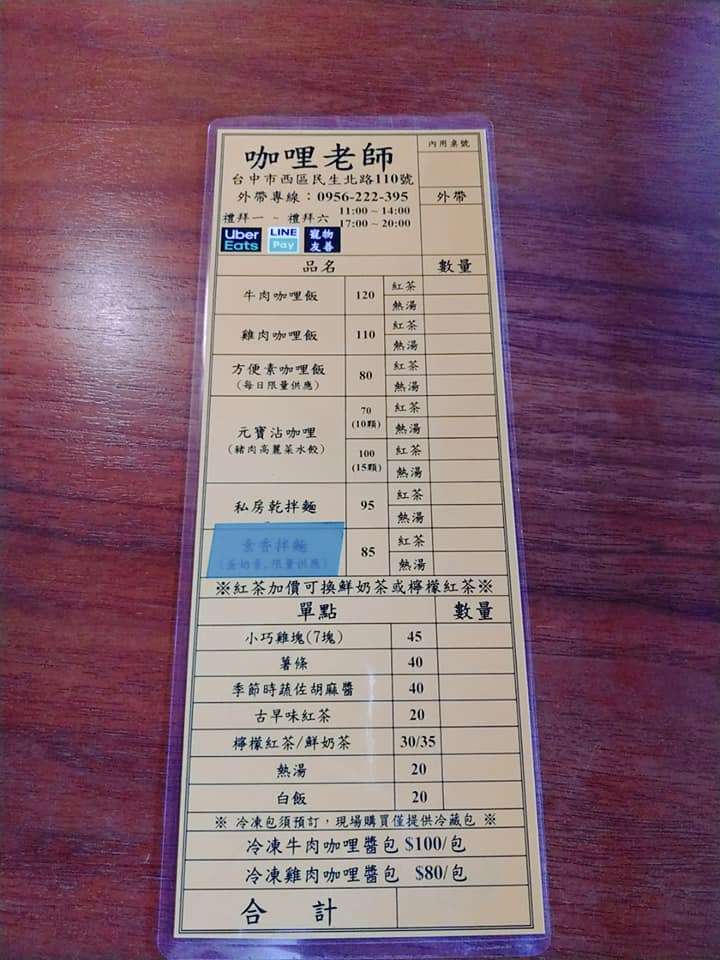 咖哩老師
內用桌號
台中市西區民生北路110號
外帶專線：0956-222-395
外帶
禮拜一 ~ 禮拜六
11:00 ~ 14:00
17:00 ~ 20:00
Uber Eats
LINE Pay
寵物友善
品名 數量
牛肉咖哩飯 120 紅茶
熱湯
雞肉咖哩飯 110 紅茶
熱湯
方便素咖哩飯 80 紅茶
(每日限量供應) 熱湯
元寶沾咖哩 70 紅茶
(豬肉高麗菜水餃) (10顆) 熱湯
100 紅茶
(15顆) 熱湯
私房乾拌麵 95 紅茶
熱湯
素香拌麵 85 紅茶
(蛋奶素,限量供應) 熱湯
※紅茶加價可換鮮奶茶或檸檬紅茶※
單點 數量
小巧雞塊(7塊) 45
薯條 40
季節時蔬佐胡麻醬 40
古早味紅茶 20
檸檬紅茶/鮮奶茶 30/35
熱湯 20
白飯 20
※ 冷凍包須預訂，現場購買僅提供冷藏包 ※
冷凍牛肉咖哩醬包 $100/包
冷凍雞肉咖哩醬包 $80/包
合計